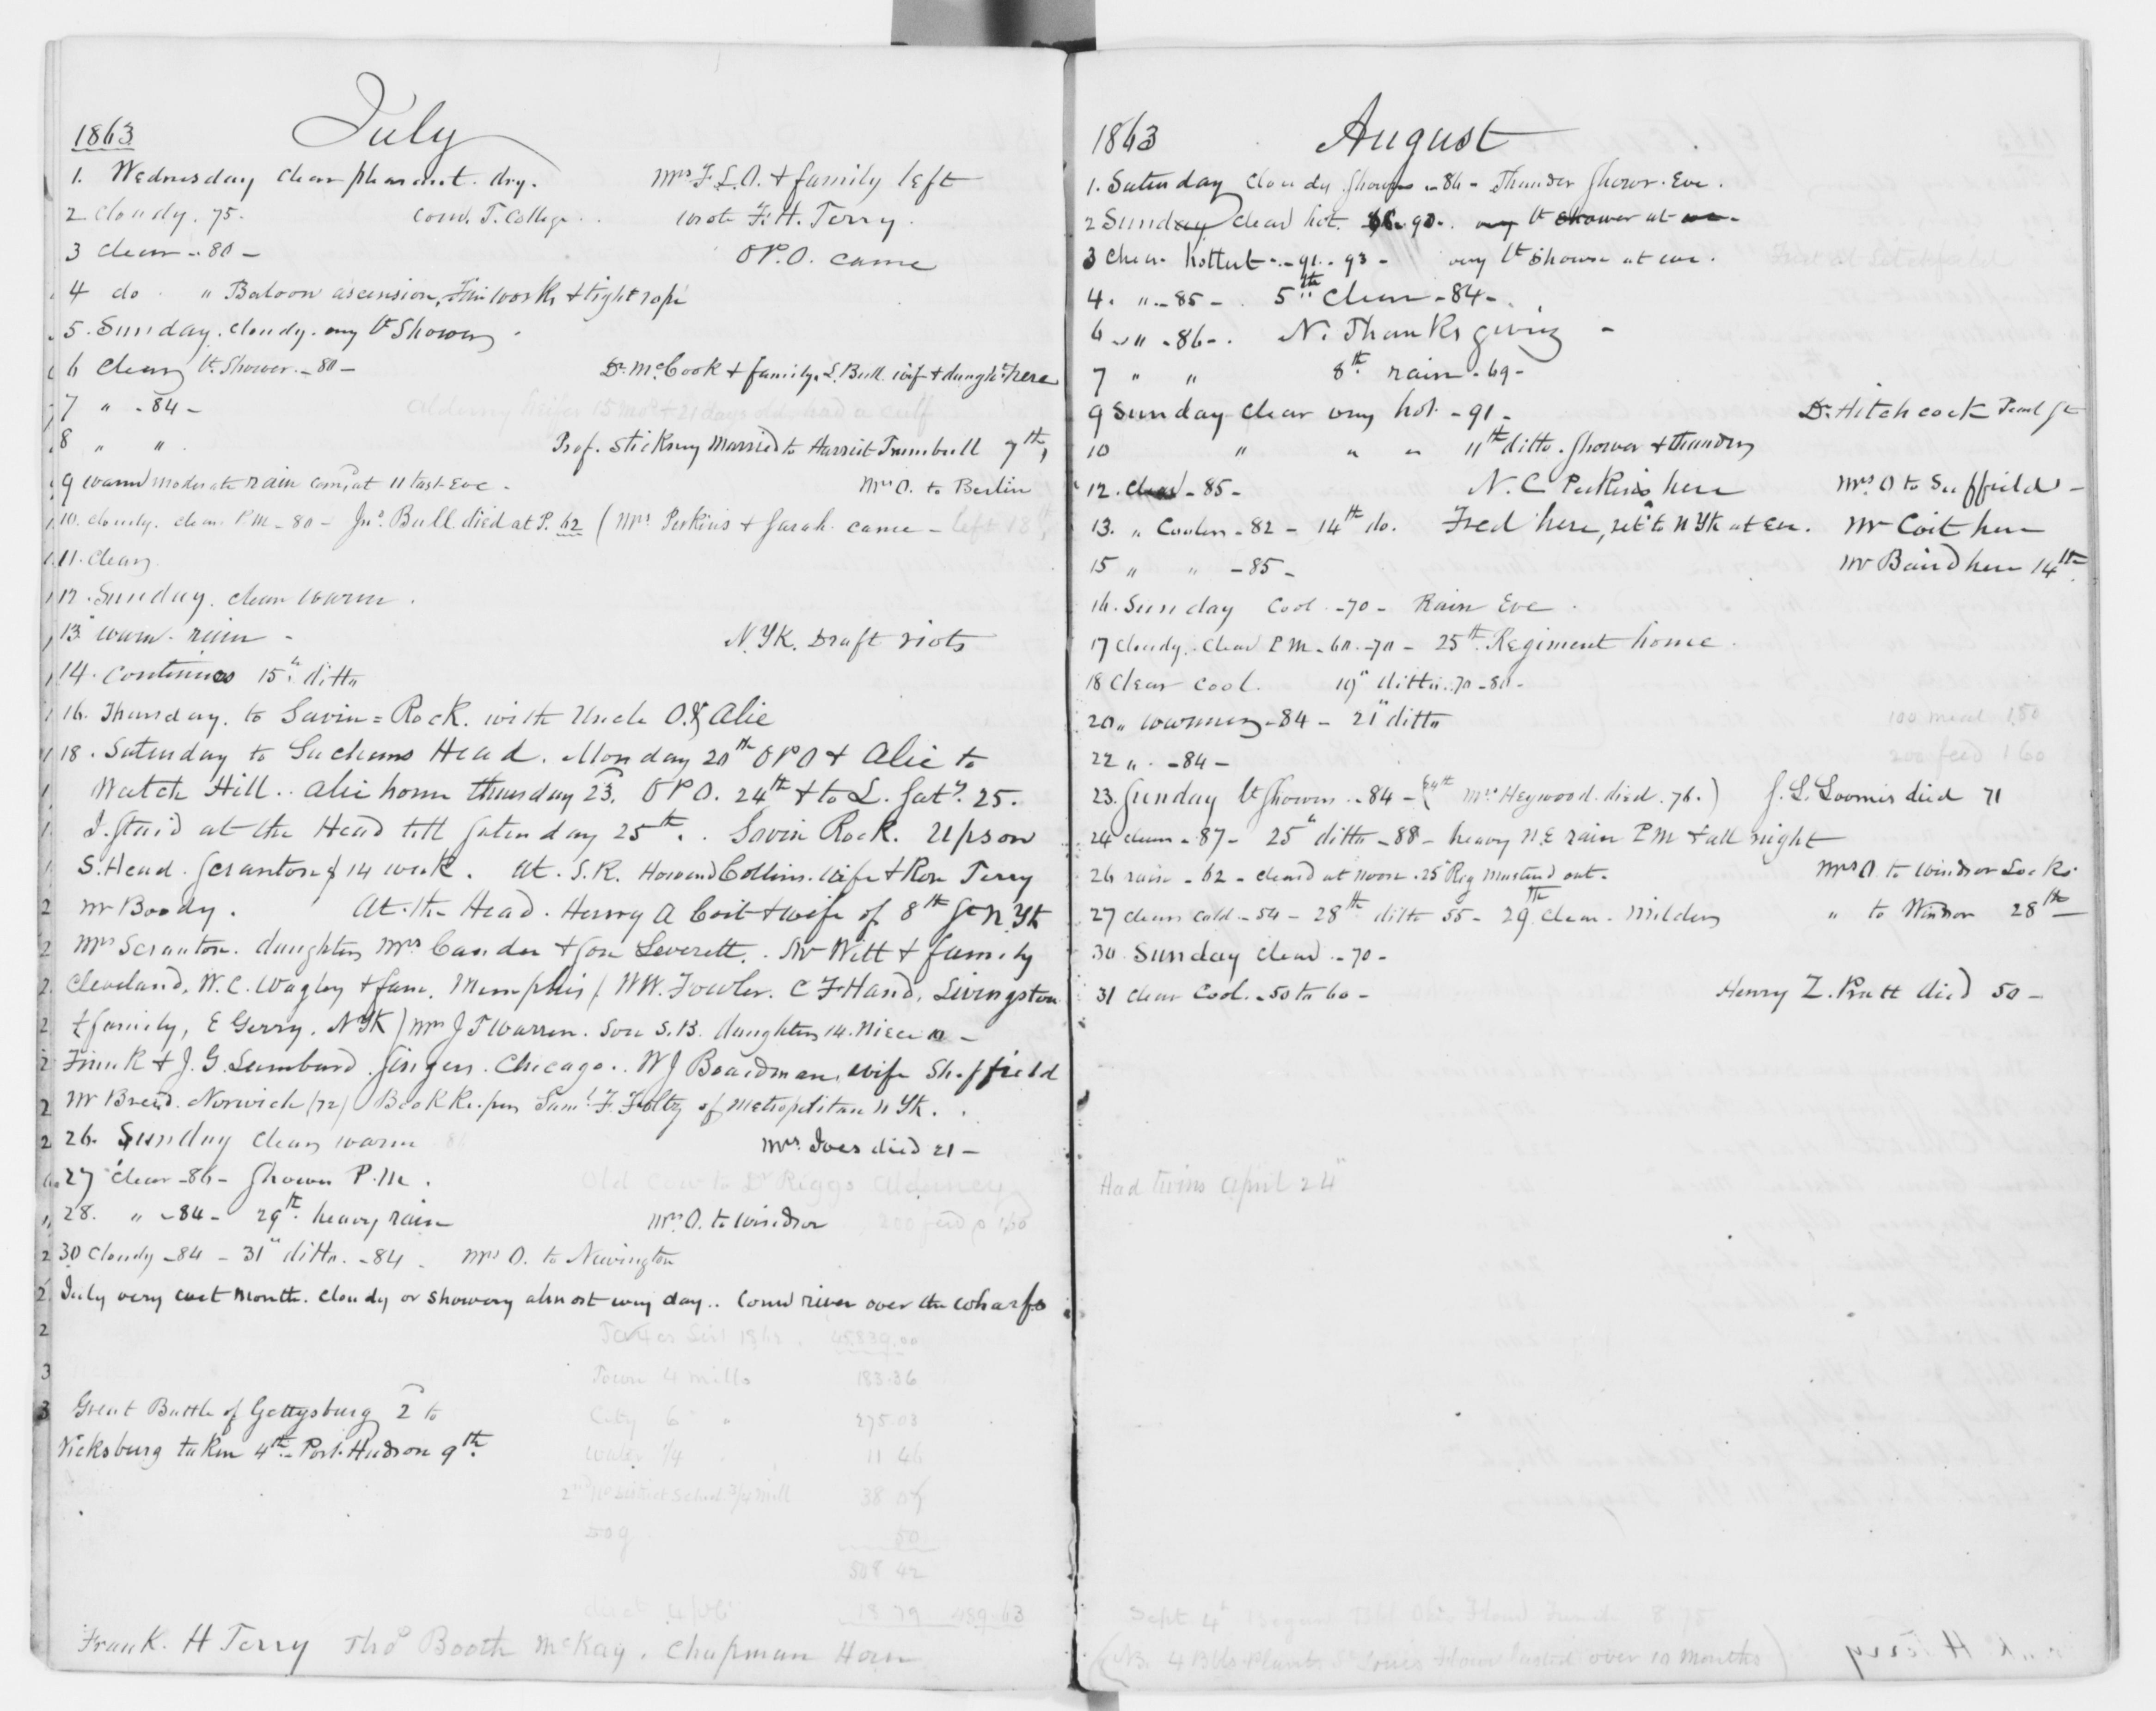 1863 July
1. Wednesday clear pleasant. dry. Mrs F.L.O. & family left
2 cloudy. 75. Com. T. College. wrote F. H. Terry.
3 clear - 80 - O.P.O. came
4 do. " Baloon ascension, Fireworks & tight rope
5. Sunday. cloudy. any lt Shower
6 Clear lt. Shower. - 80 - Dr. McCook & family. L. Bull. wife & daughtr. here
7 " - 84 - Alderny heifer 15 mos & 21 days old. had a calf
8 " " Prof. Stickney Married to Harriet Trumbull 7th,
9 warm moderate rain at 11 last Eve - Mrs O. to Berlin
10. cloudy. clear P.M - 80 - Jno. Bull died at P. 62 (Mrs Perkins & Sarah. came - left 18th
11. clear
12. Sunday. clear warm.
13 warm. rain - N.YK. Draft riots
14. Continues 15" ditto
16. Thursday. to Savin = Rock. with Uncle O. & Alie
18. Saturday to Sachems Head. Monday 20th OPO & Alie to
Watch Hill.. Alie home thursday 23. O P O. 24th & to L. Saty. 25.
I. staid at the Head till Saturday 25th.. Savin Rock. Upson
S. Head. Scranton $14 week. At. S.R. Howard Collins. Wife & Rose Terry
Mr Boody. At the Head. Henry A Coit & wife of 8th St N.Yk
Mrs Scranton. daughter Mrs. & son Leverett.. Mr Witt & family
Cleveland, W. C. Wagley & fam. Memphis / WW. Fowler. C F Hand, Livingston
& family, E Gerry. NYK) Mrs J T Warren. Son S. B. daughter 14. Niece 10 -
Frank & J. G. Lumbard. Singers. Chicago.. W J Boardman, wife Sheffield
Mr Breed. Norwich (72) Book Keeper Saml. F. of Metropolitan N Yk..
26. Sunday clear warm Mrs. Ives died 21 -
27 clear - 86 - Shower P.M. Old Cow to Dr Riggs Alderney
28. " - 84 - 29th. heavy rain Mrs. O. to Windsor 200 feed 1,60
30 Cloudy - 84 - 31" ditto. - 84. Mrs O. to Newington
July very wet month. cloudy or showery almost every day.. Conn river over the wharfs
45839.00
Town 4 mills 183.36
City 6 " 275 03
Water 1/4 11 46
School 3/4 mill 38 07
Dog 50
Great Battle of Gettysburg 2 to
Vicksburg taken 4th - Port Hudson 9th.
508 42
18 79 489.63
Frank. H Terry Thos Booth McKay. Chapman
1863 August
1. Saturday Cloudy. Shower - 86 - Thunder Shower. Eve.
2 Sunday Clear hot. 86. 90.. any lt shower at
3 Clear hottest - 91.. 93 - very lt Shower at eve.
4. " - 85 - 5th clear - 84 -.
6 " - 86 -. N. Thanks giving -
7 " " 8th. rain - 69 -
9 Sunday clear very hot - 91 - Dr. Hitchcock Pearl St
10 " " " 11th ditto. Shower & thunder
12. Clear - 85 - N. C Perkins here Mrs. O to Suffield -
13. " Cooler - 82 - 14th do. Fred here, ret. to N Yk at Eve. Mr Coit here
15 " " - 85 - Mr Baird here 14th
16. Sunday Cool - 70 - Rain Eve.
17 Cloudy. Clear P M - 60 - 70 - 25th Regiment home.
18 Clear Cool. 19" ditto. 70 - 80 -
20 " warmer - 84 - 21" ditto 100 meal 1,80
22 " - 84 - 200 feed 1 60
23. Sunday lt Shower - 84 - ( Mrs Heywood. died. 76.) J. L. Loomis died 71
24 clear - 87 - 25" ditto - 88 - heavy N.E rain P M & all night
26 rain - 62 - cleard at noon. 25 Reg mustered out. Mrs O. to Windsor Locks.
27 clear cold - 54 - 28th ditto 55 - 29th clear. milder " to Windsor 28th
30 Sunday clear - 70 -
31 clear Cool. - 50 to 60 - Henry Z. Pratt died 50 -
Had twins April 24"
Sept 4" Begun Bbl Ohio Flour 8.75
(NB 4 Bbls Plants St Louis Flour lasted over 10 months)